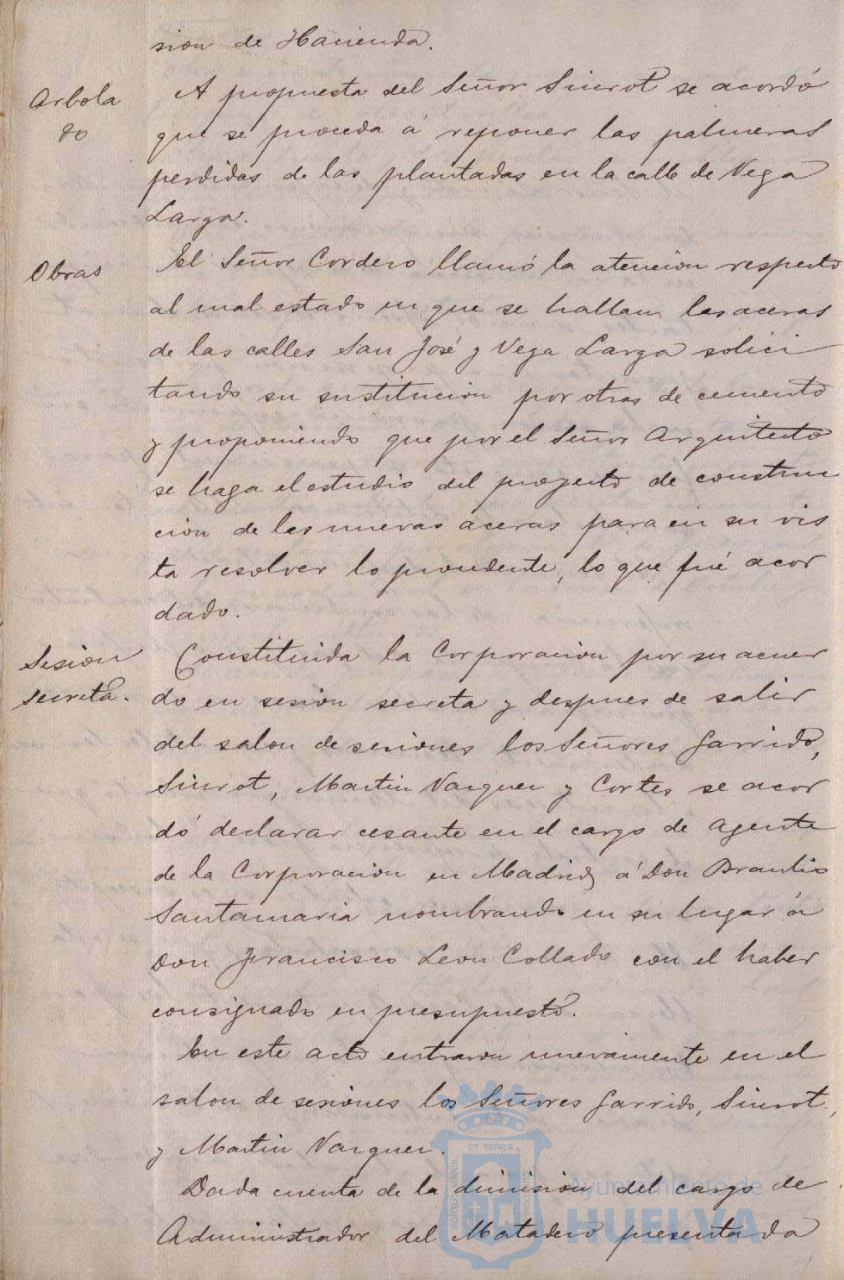 sion de Hacienda.
Arbola
do
A propuesta del Señor Siurot se acordó
que se proceda á reponer las palmeras
perdidas de las plantadas en la calle de Vega
Larga.
Obras
El Señor Cordero llamó la atencion respecto
al mal estado en que se hallan las aceras
de las calles San José y Vega Larga solici
tando su sustitucion por otras de cemento
y proponiendo que por el Señor Arquitecto
se haga el estudio del proyecto de construc
cion de les nuevas aceras para en su vis
ta resolver lo procedente, lo que fué acor
dado.
Sesion
secreta.
Constituida la Corporacion por su acuer
do en sesion secreta y despues de salir
del salon de sesiones los Señores Garrido,
Siurot, Martin Vazquez y Cortes se acor
dó declarar cesante en el cargo de agente
de la Corporacion en Madrid á Don Braulio
Santamaria nombrando en su lugar á
Don Francisco Leon Collado con el haber
consignado en presupuesto.
En este acto entraron nuevamente en el
salon de sesiones los Señores Garrido, Siurot,
y Martin Vazquez.
Dada cuenta de la dimision del cargo de
Administrador del Matadero presentada
Ayuntamiento de
HUELVA